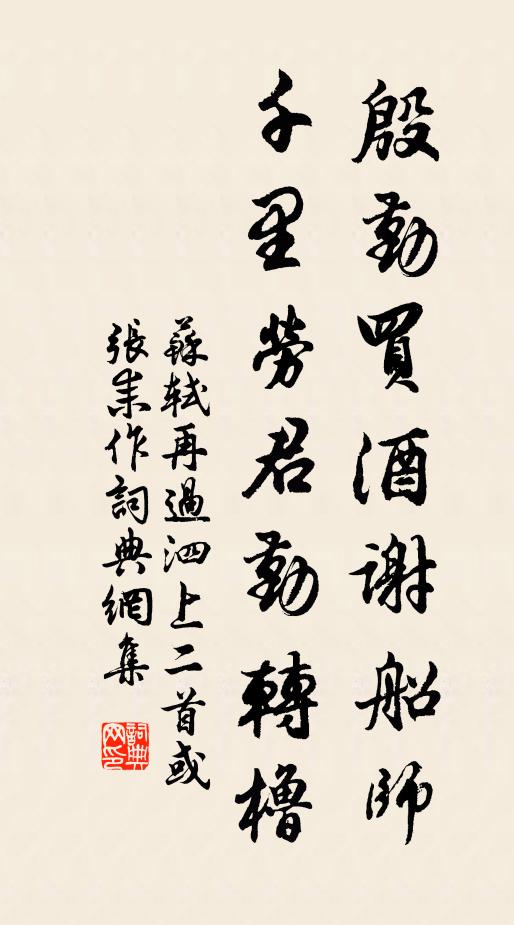 殷勤買酒謝船師
千里勞君勤轉櫓
蘇軾再過泗上二首或
張耒作詞典網集
詞典網印